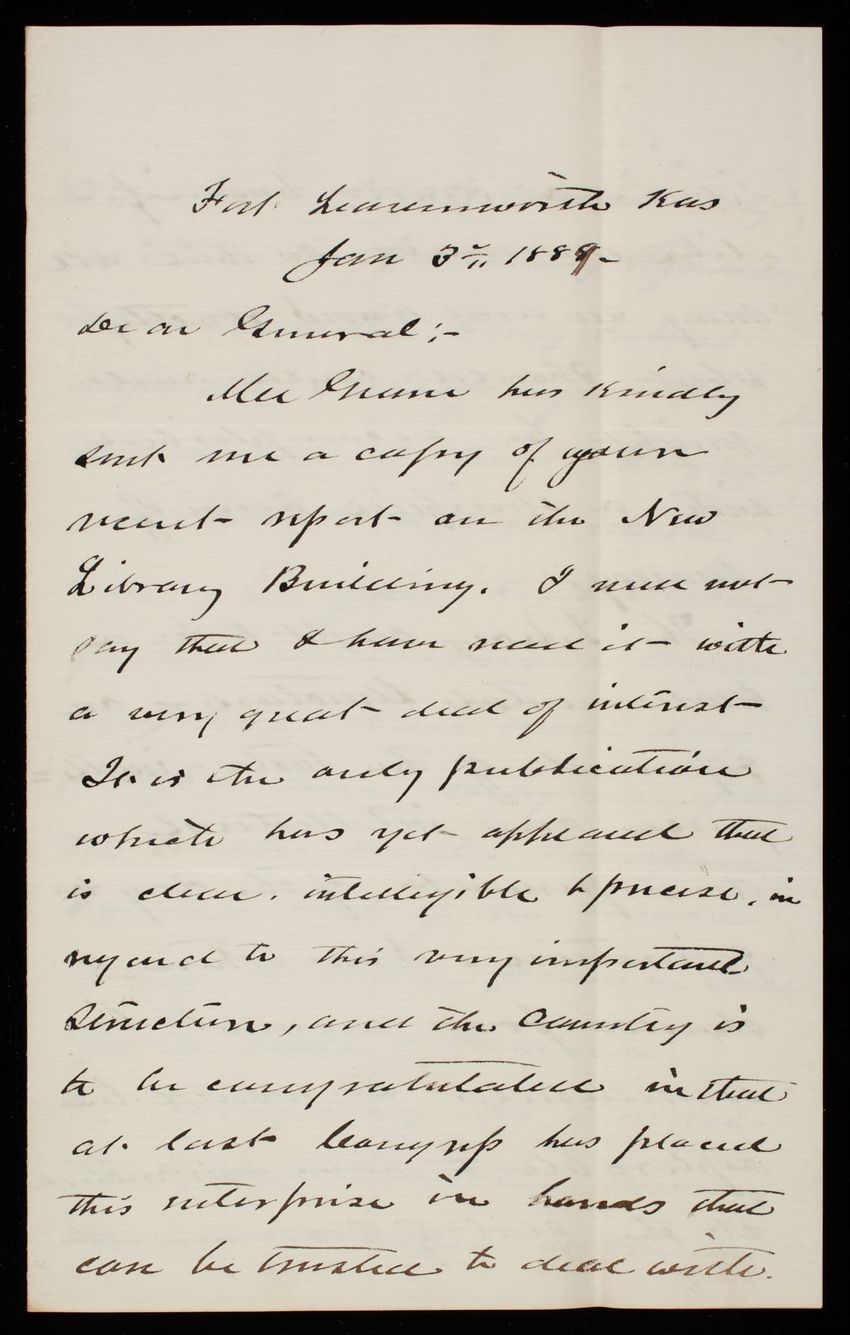 Fort Leavenworth Kas
Jan 3rd, 1889-
Dear General;-
Mr Green has kindly
sent me a copy of your
recent report on the New
Library Building. I need not
say that I have read it with
a very great deal of interest
It is the only publication
which has yet appeared that
is clear, intelligible & precise, in
regard to this very important
structure, and the Country is
to be congratulated in that
at last Congress has placed
this enterprise in hands that
can be trusted to deal with.